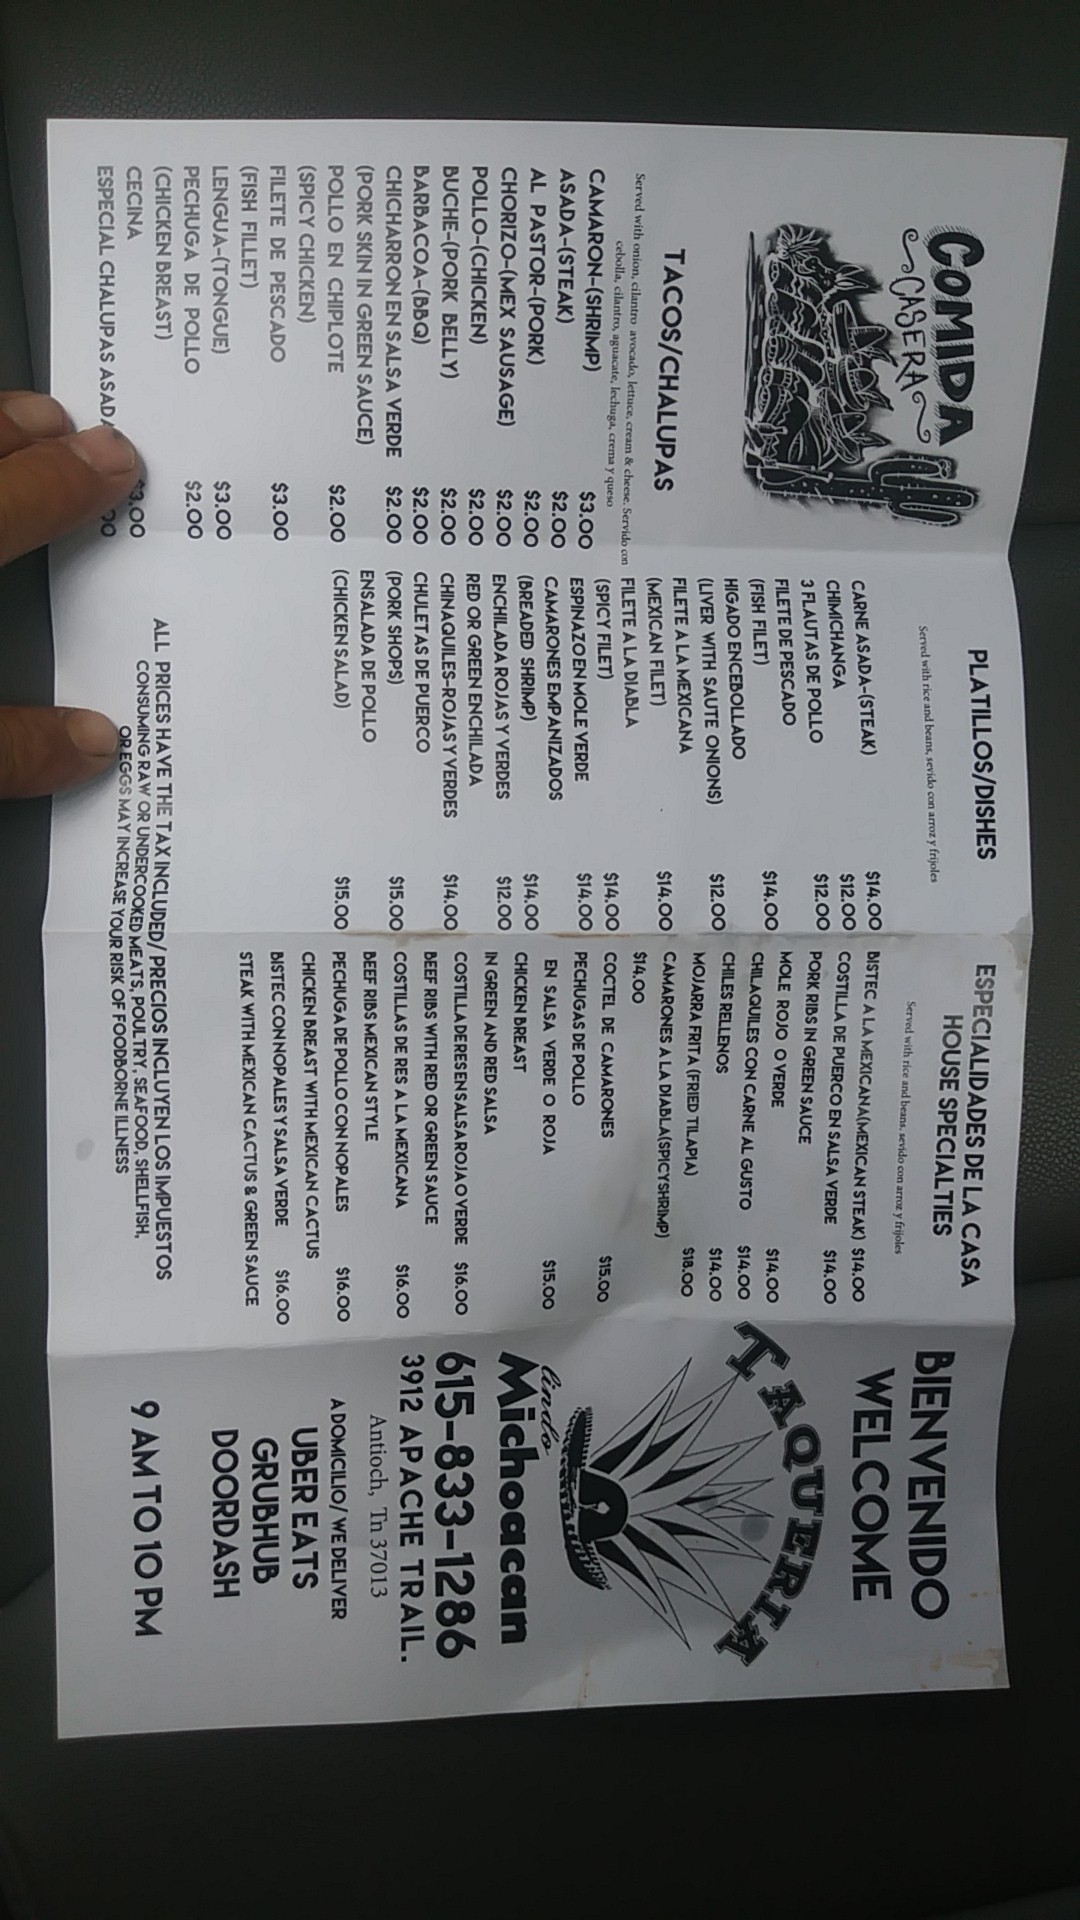 COMIDA
CASERA
TACOS/CHALUPAS
Served with onion, cilantro avocado, lettuce, cream & cheese. Servido con
cebolla, cilantro, aguacate, lechuga, crema y queso
CAMARON-(SHRIMP) $3.00
ASADA-(STEAK) $2.00
AL PASTOR-(PORK) $2.00
CHORIZO-(MEX SAUSAGE) $2.00
POLLO-(CHICKEN) $2.00
BUCHE-(PORK BELLY) $2.00
BARBACOA-(BBQ) $2.00
CHICHARRON EN SALSA VERDE $2.00
(PORK SKIN IN GREEN SAUCE)
POLLO EN CHIPLOTE $2.00
(SPICY CHICKEN)
FILETE DE PESCADO $3.00
(FISH FILLET)
LENGUA-(TONGUE) $3.00
PECHUGA DE POLLO $2.00
(CHICKEN BREAST)
CECINA $3.00
ESPECIAL CHALUPAS ASADA
PLATILLOS/DISHES
Served with rice and beans, sevido con arroz y frijoles
CARNE ASADA-(STEAK) $14.00
CHIMICHANGA $12.00
3 FLAUTAS DE POLLO $12.00
FILETE DE PESCADO
(FISH FILET) $14.00
HIGADO ENCEBOLLADO
(LIVER WITH SAUTE ONIONS) $12.00
FILETE A LA MEXICANA
(MEXICAN FILET) $14.00
FILETE A LA DIABLA
(SPICY FILET) $14.00
ESPINAZO EN MOLE VERDE $14.00
CAMARONES EMPANIZADOS
(BREADED SHRIMP) $14.00
ENCHILADA ROJAS Y VERDES $12.00
RED OR GREEN ENCHILADA
CHINAQUILES-ROJAS Y VERDES $14.00
CHULETAS DE PUERCO
(PORK SHOPS) $15.00
ENSALADA DE POLLO
(CHICKEN SALAD) $15.00
ESPECIALIDADES DE LA CASA
HOUSE SPECIALTIES
Served with rice and beans, sevido con arroz y frijoles
BISTEC A LA MEXICANA(MEXICAN STEAK) $14.00
COSTILLA DE PUERCO EN SALSA VERDE $14.00
PORK RIBS IN GREEN SAUCE
MOLE ROJO O VERDE $14.00
CHILAQUILES CON CARNE AL GUSTO $14.00
CHILES RELLENOS $14.00
MOJARRA FRITA (FRIED TILAPIA) $18.00
CAMARONES A LA DIABLA(SPICY SHRIMP)
$14.00
COCTEL DE CAMARONES $15.00
PECHUGAS DE POLLO
EN SALSA VERDE O ROJA $15.00
CHICKEN BREAST
IN GREEN AND RED SALSA
COSTILLA DE RES EN SALSA ROJA O VERDE $16.00
BEEF RIBS WITH RED OR GREEN SAUCE
COSTILLAS DE RES A LA MEXICANA $16.00
BEEF RIBS MEXICAN STYLE
PECHUGA DE POLLO CON NOPALES $16.00
CHICKEN BREAST WITH MEXICAN CACTUS
BISTEC CON NOPALES Y SALSA VERDE $16.00
STEAK WITH MEXICAN CACTUS & GREEN SAUCE
ALL PRICES HAVE THE TAX INCLUDED/ PRECIOS INCLUYEN LOS IMPUESTOS
CONSUMING RAW OR UNDERCOOKED MEATS, POULTRY, SEAFOOD, SHELLFISH,
OR EGGS MAY INCREASE YOUR RISK OF FOODBORNE ILLNESS
BIENVENIDO
WELCOME
TAQUERIA
lindo
Michoacan
615-833-1286
3912 APACHE TRAIL.
Antioch, Tn 37013
A DOMICILIO/ WE DELIVER
UBER EATS
GRUBHUB
DOORDASH
9 AM TO 10 PM